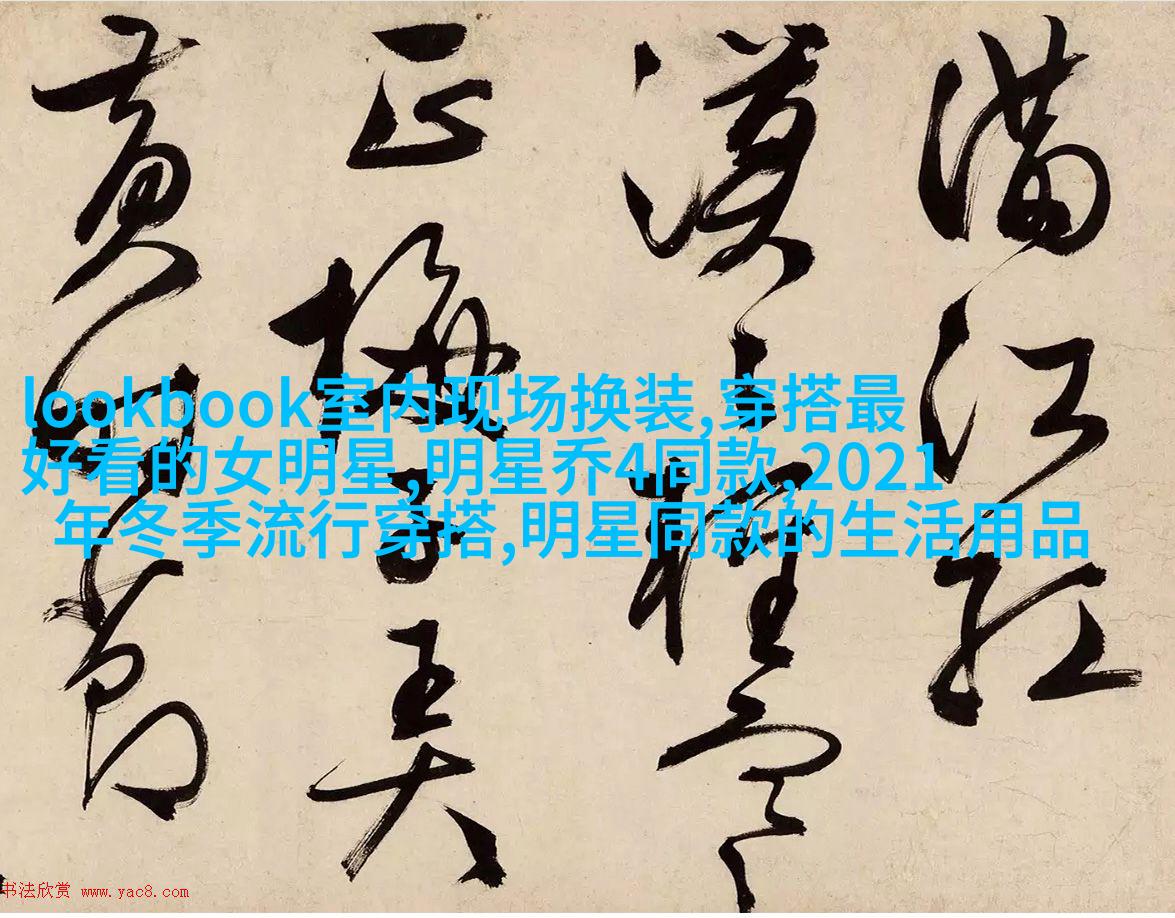 滿江紅
漠々輕寒
正梅子弄
黄時節
lookbook室内现场换装,穿搭最
好看的女明星,明星乔4同款,2021
年冬季流行穿搭,明星同款的生活用品
书法欣赏 www.yac8.com